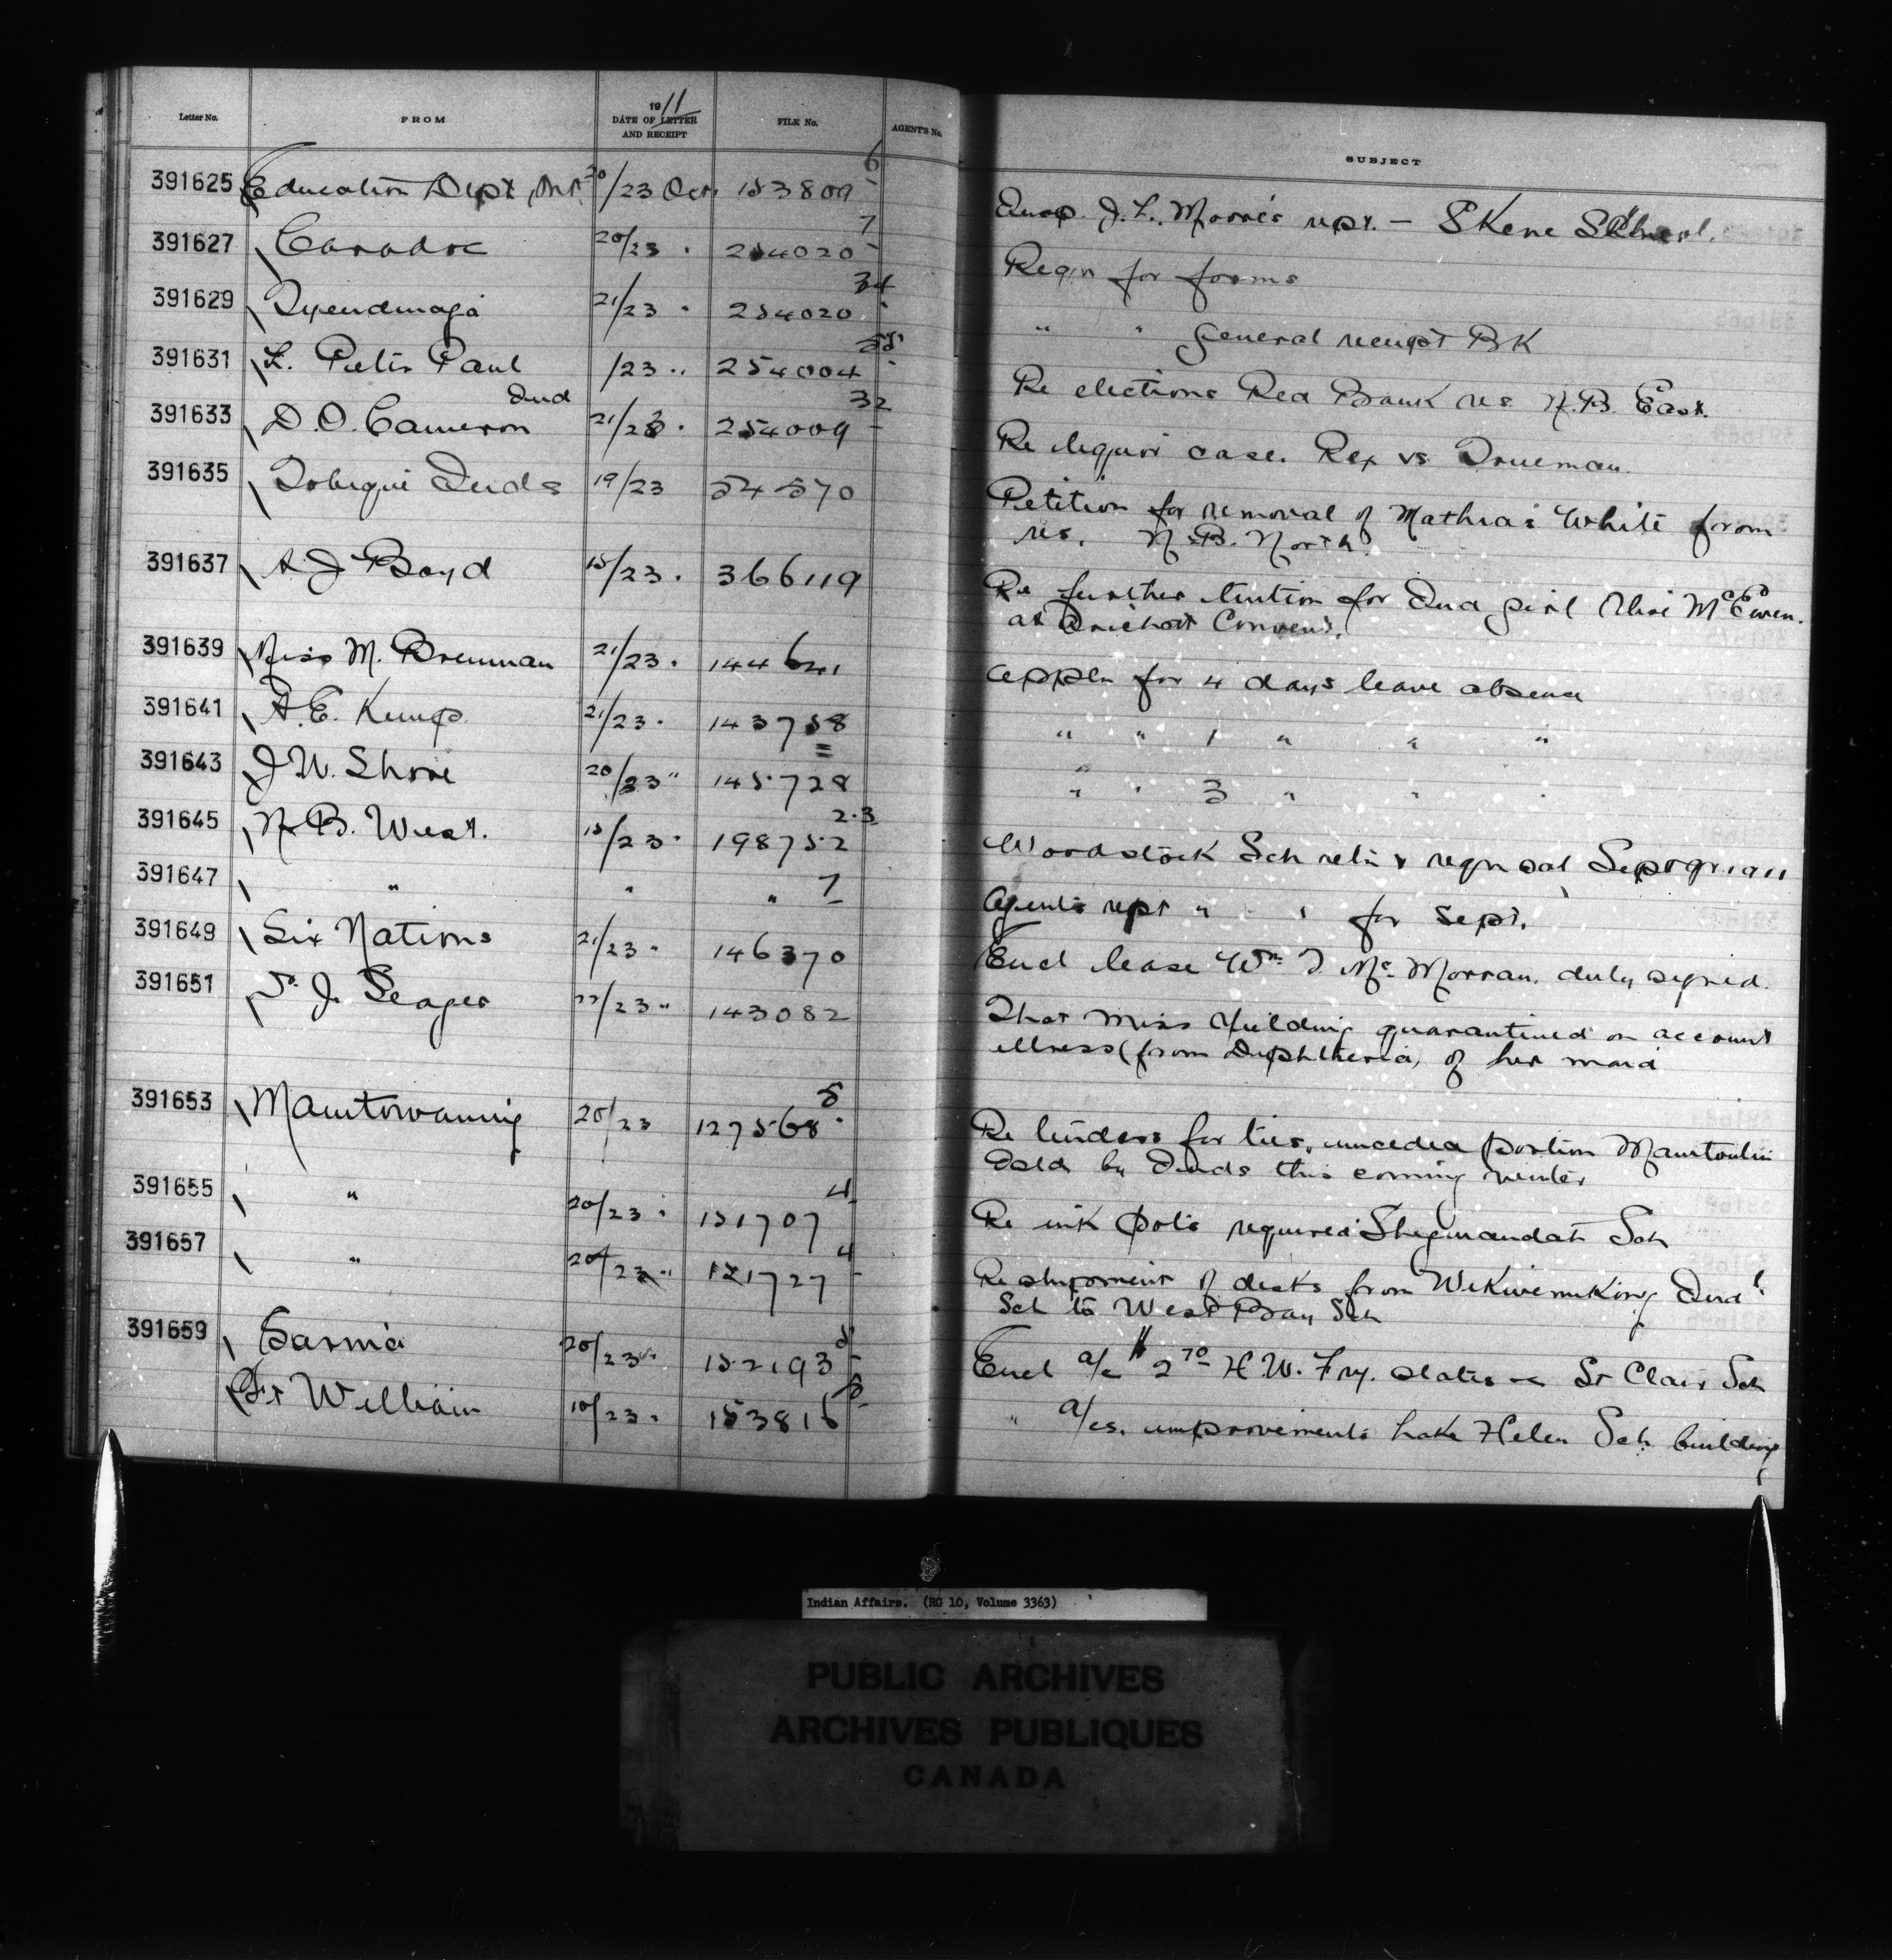 Letter No. FROM 1911 DATE OF LETTER AND RECEIPT FILE No. AGENT'S No. SUBJECT
391625 Education Dept, Ont. 20/23 Oct. 153809-6 Insp. J. L. Moore's rept. — Skene School.
391627 Caradoc 20/23 " 254020-7 Reqn for forms
391629 Tyendinaga 21/23 " 254020-34 " " general receipt BK
391631 L. Peter Paul /23 " 254004 Re elections Red Bank res. N.B. East.
391633 D. O. Cameron 21/23 " 254009-32 Re liquor case. Rex vs Trueman.
391635 Tobique Inds 19/23 54570 Petition for removal of Mathias White from
res. N.B. North.
391637 A J Boyd 18/23 " 366119 Re further tuition for Ind girl McEwen.
at Arichat Convent.
391639 Miss M. Brennan 21/23 " 144641 Appln for 4 days leave absence
391641 A. E. Kemp 21/23 " 143758 " " 1 " " "
391643 J. W. Shore 20/23 " 145728 " " 3 " " "
391645 N. B. West. 18/23 " 198752-3 Woodstock Sch retn & reqn Sept qr. 1911
391647 " " " 1 Agents rept " " for Sept.
391649 Six Nations 21/23 " 146370 Encl lease Wm. T. McMorran, duly signed.
391651 J. Seager 22/23 " 143082 That Miss Fielding quarantined on account
illness (from Diphtheria) of her maid
391653 Manitowaning 20/23 127568-8 Re tenders for ties, unceded portion Manitoulin
Isld by Inds this coming winter
391655 " 20/23 " 151707-4 Re ink pots required Sheguiandah Sch
391657 " 20/23 " 151727-4 Re shipment of desks from Wikwemikong Indl
Sch to West Bay Sch
391659 Sarnia 20/23 " 152193-8 Encl a/c $2.70 H. W. Fry. slates — St Clair Sch
Ft William 10/23 " 153816-8 " a/cs. improvements Lake Helen Sch building
Indian Affairs. (RG 10, Volume 3363)
PUBLIC ARCHIVES
ARCHIVES PUBLIQUES
CANADA